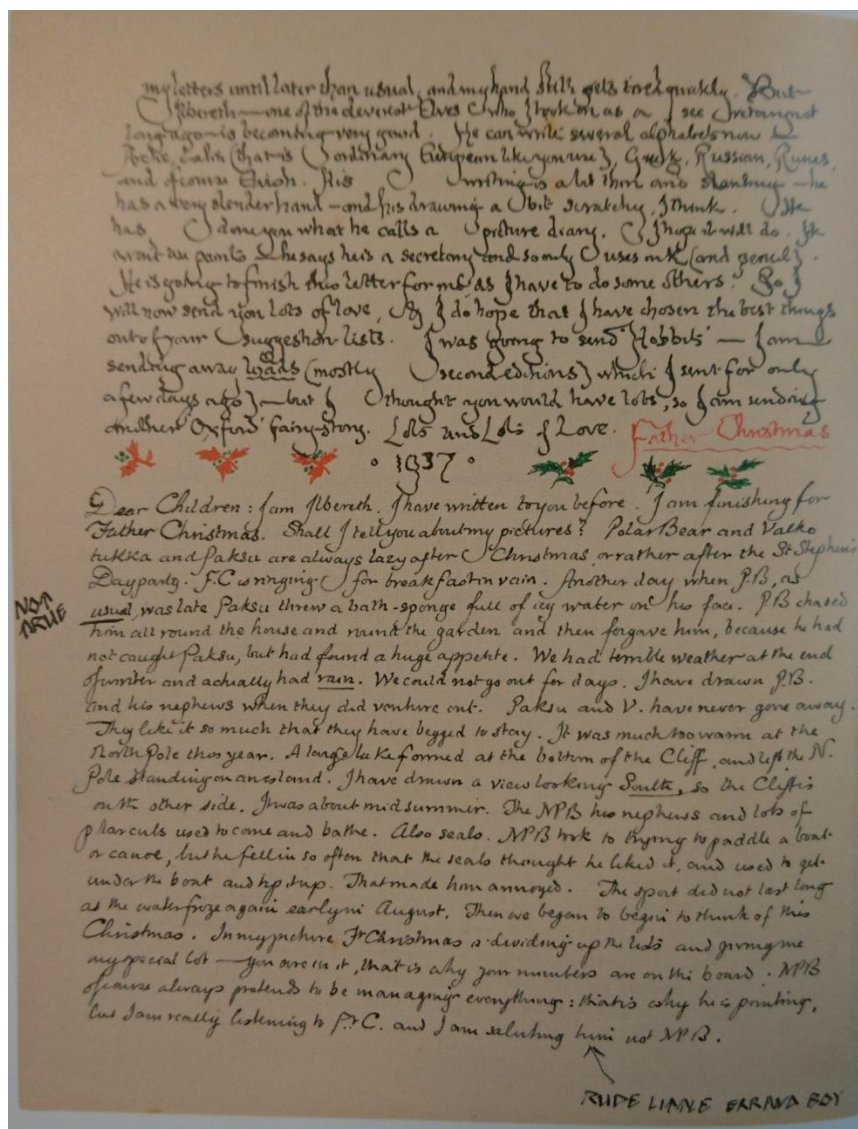 my letters until later than usual, and my hand still gets tired quickly. But
Ilbereth — one of the cleverest Elves who I took on as a secretary not
long ago — is becoming very good. He can write several alphabets now —
Arctic, Latin (that is ordinary European like you use), Greek, Russian, Runes,
and of course Elvish. His writing is a bit thin and slanting — he
has a very slender hand — and his drawing a bit scratchy, I think. He
has done you what he calls a picture diary. I hope it will do. He
won't use paints — he says he is a secretary and so only uses ink (and pencil).
He is going to finish this letter for me as I have to do some others. So I
will now send you lots of love, & I do hope that I have chosen the best things
out of your suggestion lists. I was going to send 'Hobbits' — I am
sending away loads (mostly second editions) which I sent for only
a few days ago) — but I thought you would have lots, so I am sending
another Oxford Fairy-story. Lots and Lots of Love. Father Christmas
1937
Dear Children: I am Ilbereth. I have written to you before. I am finishing for
Father Christmas. Shall I tell you about my pictures? Polar Bear and Valko
tukka and Paksu are always lazy after Christmas, or rather after the St Stephen's
Day party. F.C is ringing for breakfast in vain. Another day when P.B, as
usual, was late Paksu threw a bath-sponge full of icy water on his face. P.B chased
NOT
TRUE
him all round the house and round the garden and then forgave him, because he had
not caught Paksu, but had found a huge appetite. We had terrible weather at the end
of winter and actually had rain. We could not go out for days. I have drawn P.B.
and his nephews when they did venture out. Paksu and V. have never gone away.
They like it so much that they have begged to stay. It was much too warm at the
North Pole this year. A large lake formed at the bottom of the Cliff, and left the N.
Pole standing on an island. I have drawn a view looking South, so the Cliff is
on the other side. It was about mid summer. The NPB his nephews and lots of
polar cubs used to come and bathe. Also seals. NPB took to trying to paddle a boat
or canoe, but he fell in so often that the seals thought he liked it, and used to get
under the boat and tip it up. That made him annoyed. The sport did not last long
as the water froze again early in August. Then we began to begin to think of this
Christmas. In my picture Fr Christmas is dividing up the lists and giving me
my special lot — you are in it, that is why your numbers are on the board. NPB
of course always pretends to be managing everything: that is why he is pointing,
but I am really listening to F.C. and I am saluting him not NPB.
RUDE LITTLE ERRAND BOY